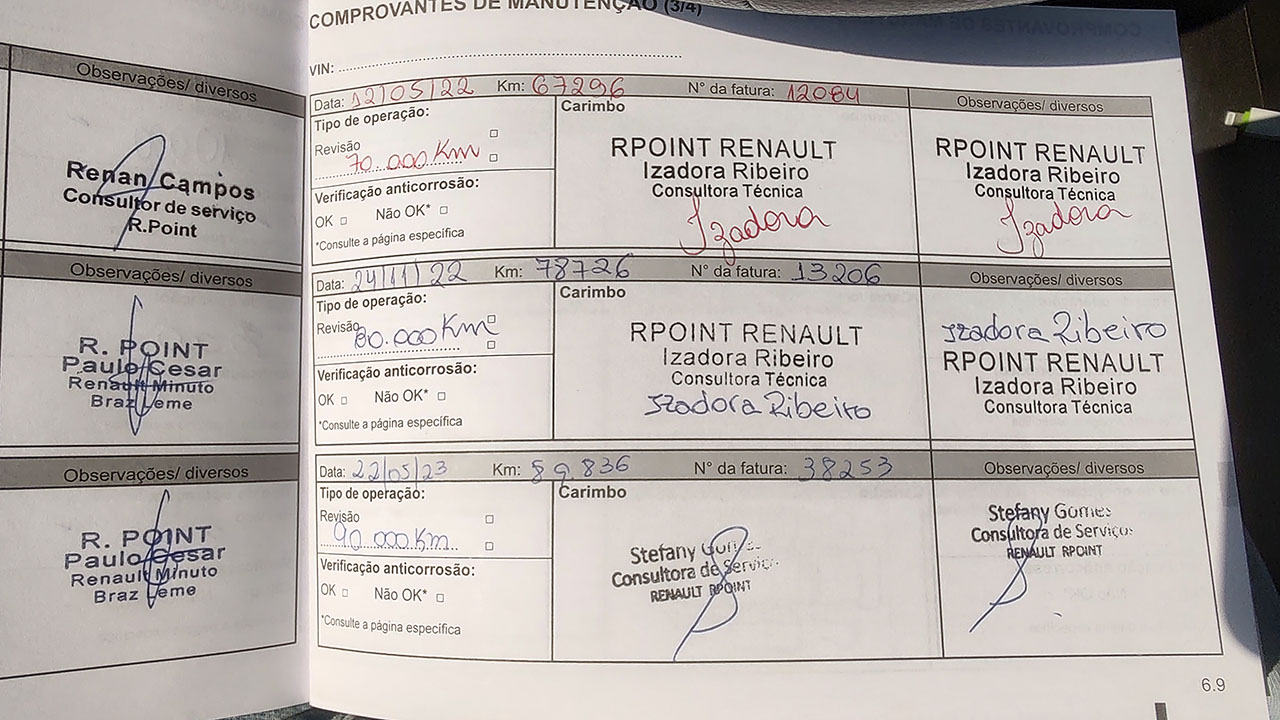 Observações/ diversos
Renan Campos
Consultor de serviço
R.Point
Observações/ diversos
R. POINT
Paulo Cesar
Renault Minuto
Braz Leme
Observações/ diversos
R. POINT
Paulo Cesar
Renault Minuto
Braz Leme
COMPROVANTES DE MANUTENÇÃO (3/4)
VIN:
Data: 12/05/22 Km: 67296 N° da fatura: 12084 Observações/ diversos
Tipo de operação:
Revisão
70.000 Km
Verificação anticorrosão:
OK Não OK*
*Consulte a página específica
Carimbo
RPOINT RENAULT
Izadora Ribeiro
Consultora Técnica
Izadora
RPOINT RENAULT
Izadora Ribeiro
Consultora Técnica
Izadora
Data: 24/11/22 Km: 78726 N° da fatura: 13206 Observações/ diversos
Tipo de operação:
Revisão
80.000 Km
Verificação anticorrosão:
OK Não OK*
*Consulte a página específica
Carimbo
RPOINT RENAULT
Izadora Ribeiro
Consultora Técnica
Izadora Ribeiro
Izadora Ribeiro
RPOINT RENAULT
Izadora Ribeiro
Consultora Técnica
Data: 22/05/23 Km: 89.836 N° da fatura: 38253 Observações/ diversos
Tipo de operação:
Revisão
90.000 Km
Verificação anticorrosão:
OK Não OK*
*Consulte a página específica
Carimbo
Stefany Gomes
Consultora de Serviços
RENAULT RPOINT
Stefany Gomes
Consultora de Serviços
RENAULT RPOINT
6.9